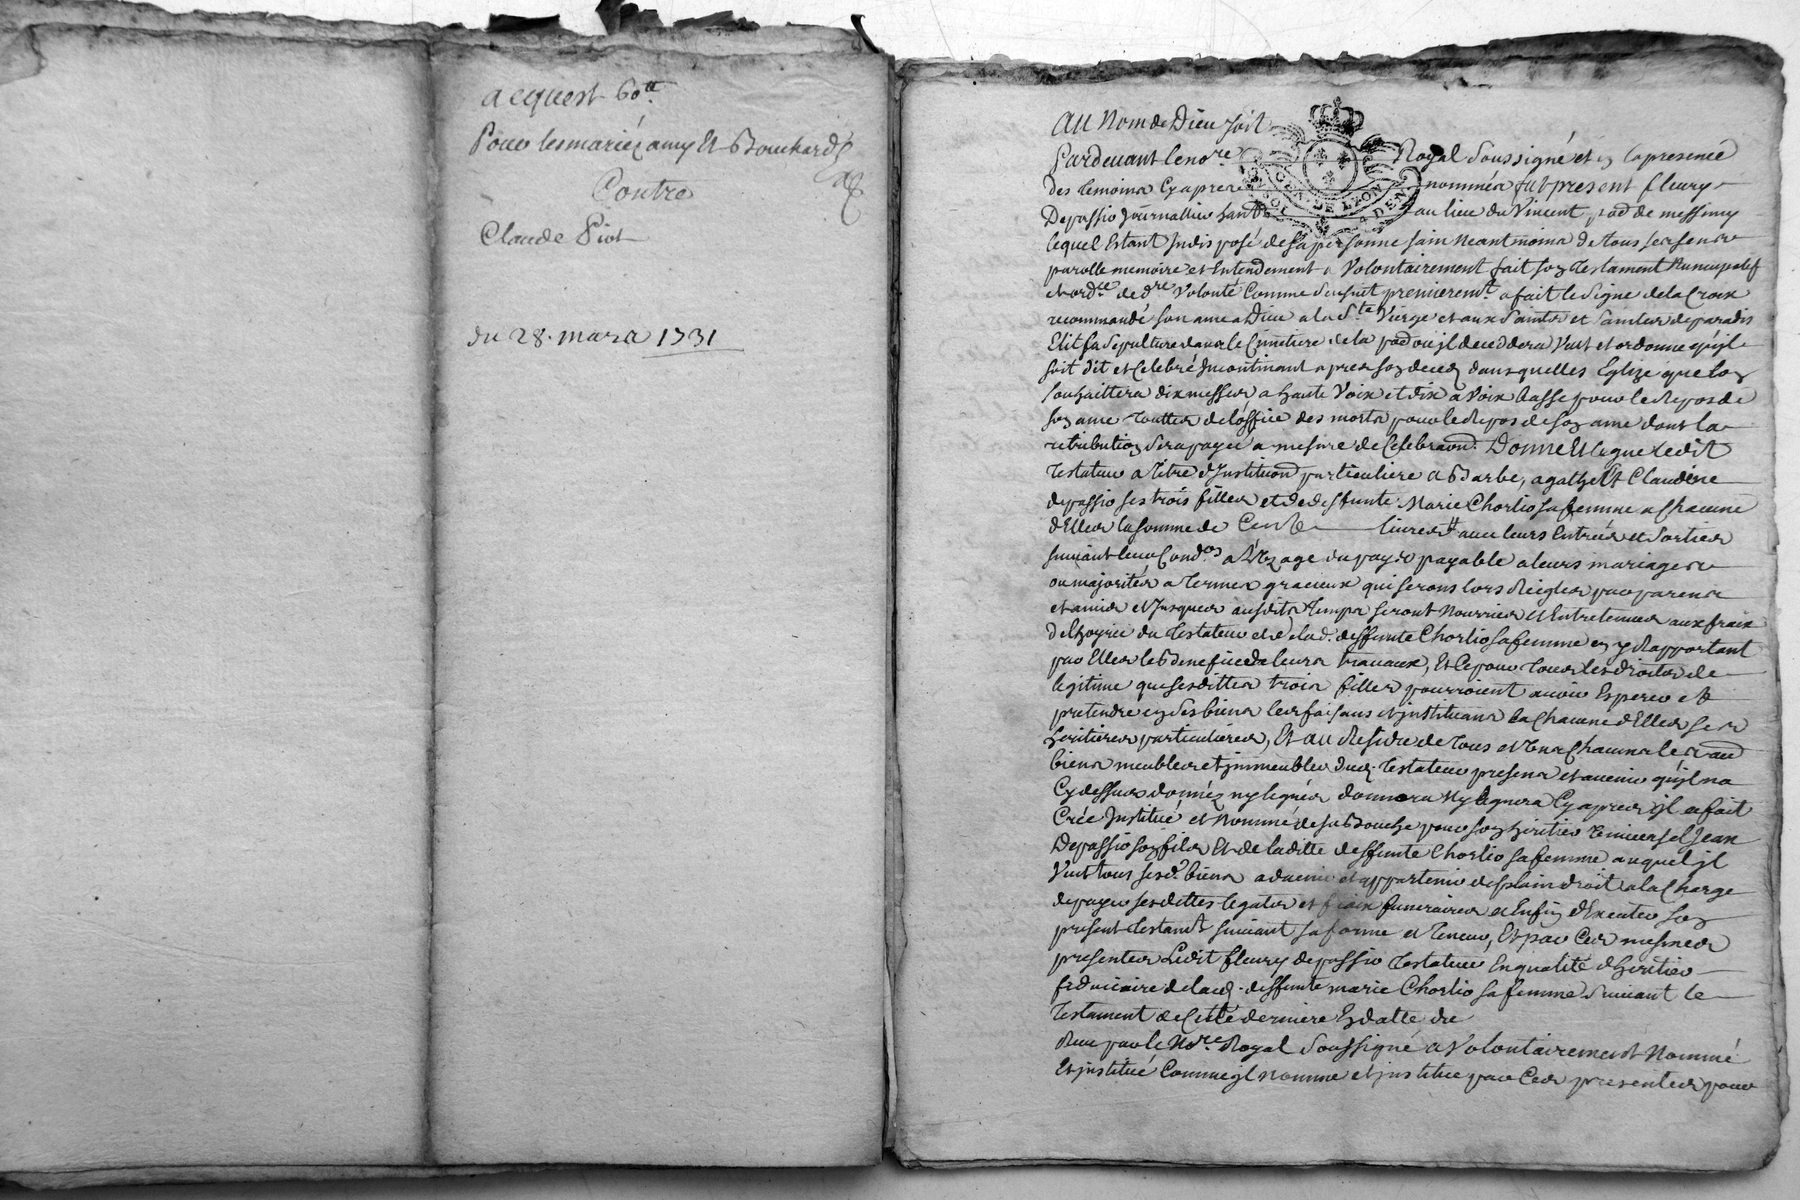 acquest 60tt
Pour les mariez amy Et Bouchard
Contre
Claude Piot
du 28. mars 1731
Au Nom de Dieu soit
Pardevant le nore Royal soussigné et en la presence
des temoins cy apres nommés fut present fleury
Depassio journallier au lieu du Vincent, pad de messimy
lequel Estant Indisposé de sa personne sain neantmoins de tous ses sens
parolle memoire et Entendement a Volontairement fait son testament Nuncupatif
et ordce de dre Volonté Comme s'ensuit premieremt a fait le signe de la Croix
recommandé son ame a Dieu a la Ste Vierge et aux Saints et Saintes de paradis
Elit sa sepulture dans le Cimetiere de la pad ou jl deceddera Veut et ordonne qu'jl
soit dit et Celebré Incontinant apres son deced dans quelles Eglize que l'on
souhaittera dix messes a haute Voix et dix a Voix basse pour le Repos de
son ame touttes de l'office des morts pour le Repos de son ame dont la
retribution sera payée a mesure de Celebraon. Donne Et legue ledit
testateur a titre d'Institution particuliere a Barbe, agathe Et Claudine
depassio ses trois filles et de deffunte Marie Chorlio sa femme a Chacune
d'Elles la somme de Cent livres avec leurs Entrées et Sorties
suivant leur Condon a L'Uzage du pays payable a leurs mariages
ou majorités a termes gracieux qui seront lors Reigles par parens
et amis et Jusques ausdits temps seront Nourries et Entretenues aux fraix
de l'hoyrie du testateur et de lad. deffunte Chorlio sa femme en y Rapportant
par Elles le Benefice de leurs travaux, Et ce pour tous les droits de
legitime que sesdittes trois filles pourroient avoir Esperer et
pretendre en ses biens les faisant et jnstituant ea Chacune d'Elles ses
heritieres particulieres, Et au Residu de tous et Uns Chacuns les aud
biens meubles et jmmeubles dud. testateur presens et avenir qu'jl na
Cy dessus donnéz ny legués donnera Ny leguera Cy apres jl a fait
Crée Institué et Nommé de sa Bouche pour son heritier Universel Jean
Depassio son fils Et de laditte deffunte Chorlio sa femme auquel jl
Veut tous sesd. biens advenir et appartenir de plain droit a la Charge
de payer ses dettes legats et fraix funeraires et Enfin d'Executer son
present testamt suivant sa forme et teneur, Et par Ces mesmes
presentes Ledit fleury depassio testateur En qualité d'heritier
fiduciaire de lad. deffunte marie Chorlio sa femme suivant le
testament de Cette derniere En datte du
Receu par le Nore Royal soussigné a Volontairement Nommé
Et jnstitué Comme jl nomme et jnstitue par Ces presentes pour